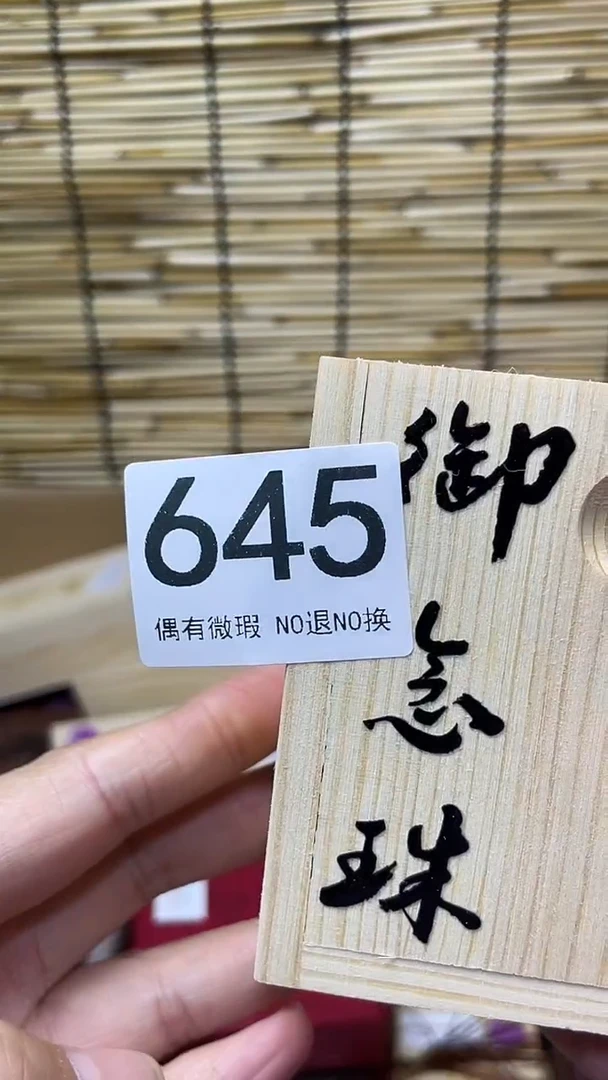 645
偶有微瑕 NO退NO换
御念珠